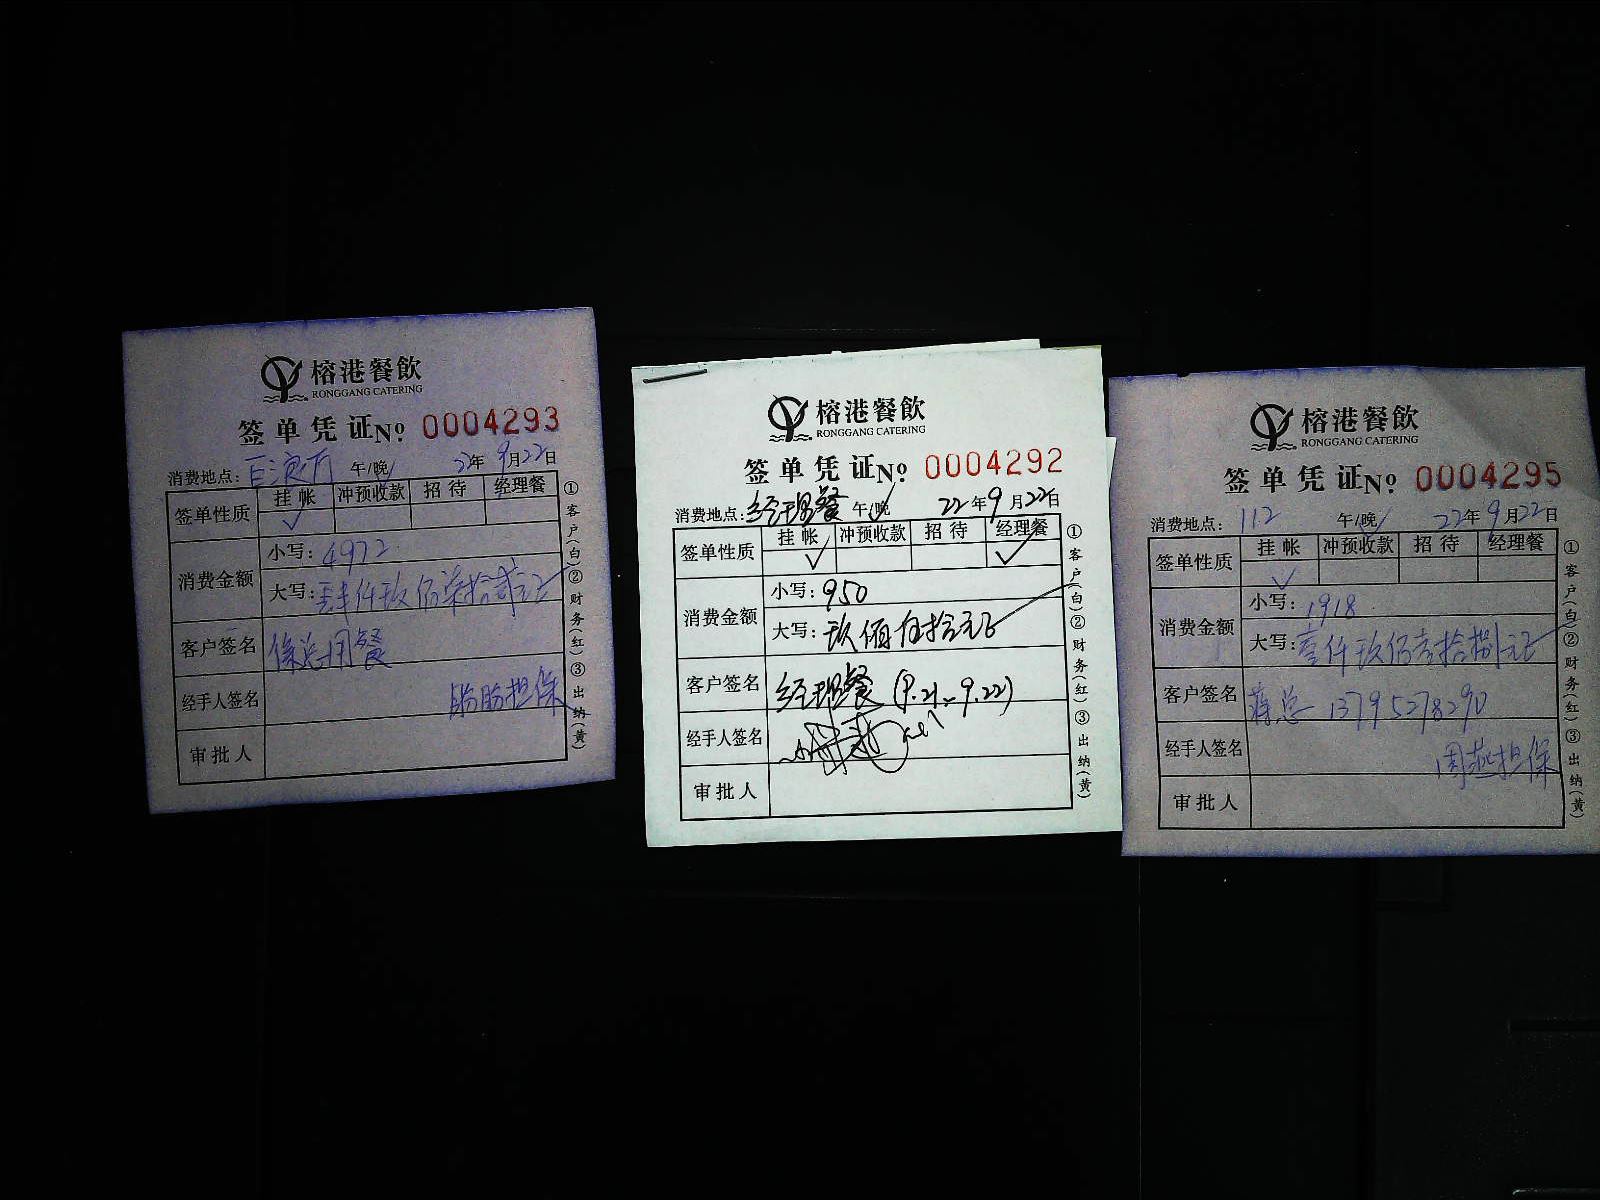 榕港餐飲
RONGGANG CATERING
签单凭证 No 0004293
消费地点: 午/晚 22年9月22日
签单性质 挂帐 冲预收款 招待 经理餐
✓
消费金额 小写: 4972
大写: 肆仟玖佰柒拾贰元正
客户签名 徐总用餐
经手人签名 肠肠担保
审批人
①客户(白)②财务(红)③出纳(黄)
榕港餐飲
RONGGANG CATERING
签单凭证 No 0004292
消费地点: 经理餐 午/晚 22年9月22日
签单性质 挂帐 冲预收款 招待 经理餐
✓ ✓
消费金额 小写: 950
大写: 玖佰伍拾元正
客户签名 经理餐 (9.21~9.22)
经手人签名
审批人
①客户(白)②财务(红)③出纳(黄)
榕港餐飲
RONGGANG CATERING
签单凭证 No 0004295
消费地点: 112 午/晚 22年9月22日
签单性质 挂帐 冲预收款 招待 经理餐
✓
消费金额 小写: 1918
大写: 壹仟玖佰壹拾捌元正
客户签名 蒋总 13795278290
经手人签名 周燕担保
审批人
①客户(白)②财务(红)③出纳(黄)